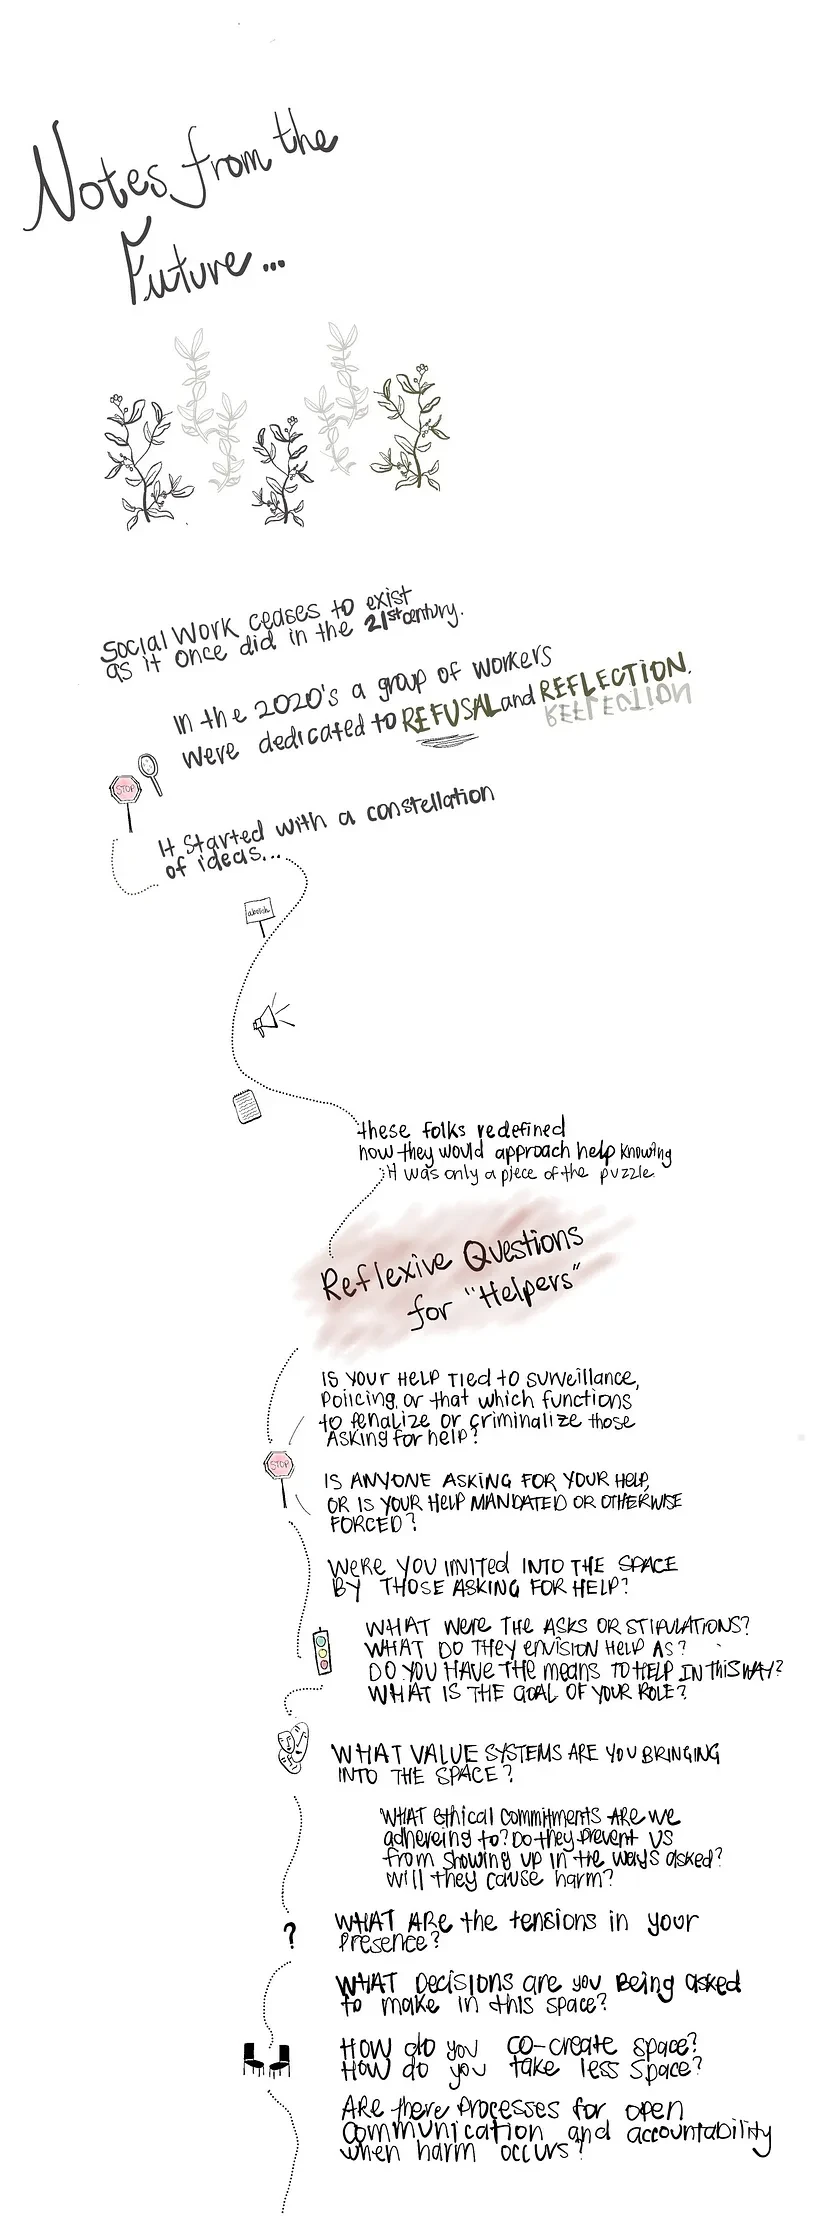 Notes from the
Future...
Social Work ceases to exist
as it once did in the 21st century.
In the 2020's a group of workers
were dedicated to REFUSAL and REFLECTION.
REFLECTION
STOP
It started with a constellation
of ideas...
abolish
these folks redefined
how they would approach help knowing
it was only a piece of the puzzle.
Reflexive Questions
for "Helpers"
IS YOUR HELP TIED TO SURVEILLANCE,
POLICING, OR THAT WHICH FUNCTIONS
TO PENALIZE OR CRIMINALIZE THOSE
ASKING FOR HELP?
STOP
IS ANYONE ASKING FOR YOUR HELP,
OR IS YOUR HELP MANDATED OR OTHERWISE
FORCED?
WERE YOU INVITED INTO THE SPACE
BY THOSE ASKING FOR HELP?
WHAT WERE THE ASKS OR STIPULATIONS?
WHAT DO THEY ENVISION HELP AS?
DO YOU HAVE THE MEANS TO HELP IN THIS WAY?
WHAT IS THE GOAL OF YOUR ROLE?
WHAT VALUE SYSTEMS ARE YOU BRINGING
INTO THE SPACE?
WHAT ETHICAL COMMITMENTS ARE WE
ADHEREING TO? DO THEY PREVENT US
FROM SHOWING UP IN THE WAYS ASKED?
WILL THEY CAUSE HARM?
?
WHAT ARE THE TENSIONS IN YOUR
PRESENCE?
WHAT DECISIONS ARE YOU BEING ASKED
TO MAKE IN THIS SPACE?
HOW DO YOU CO-CREATE SPACE?
HOW DO YOU TAKE LESS SPACE?
ARE THERE PROCESSES FOR OPEN
COMMUNICATION AND ACCOUNTABILITY
WHEN HARM OCCURS?